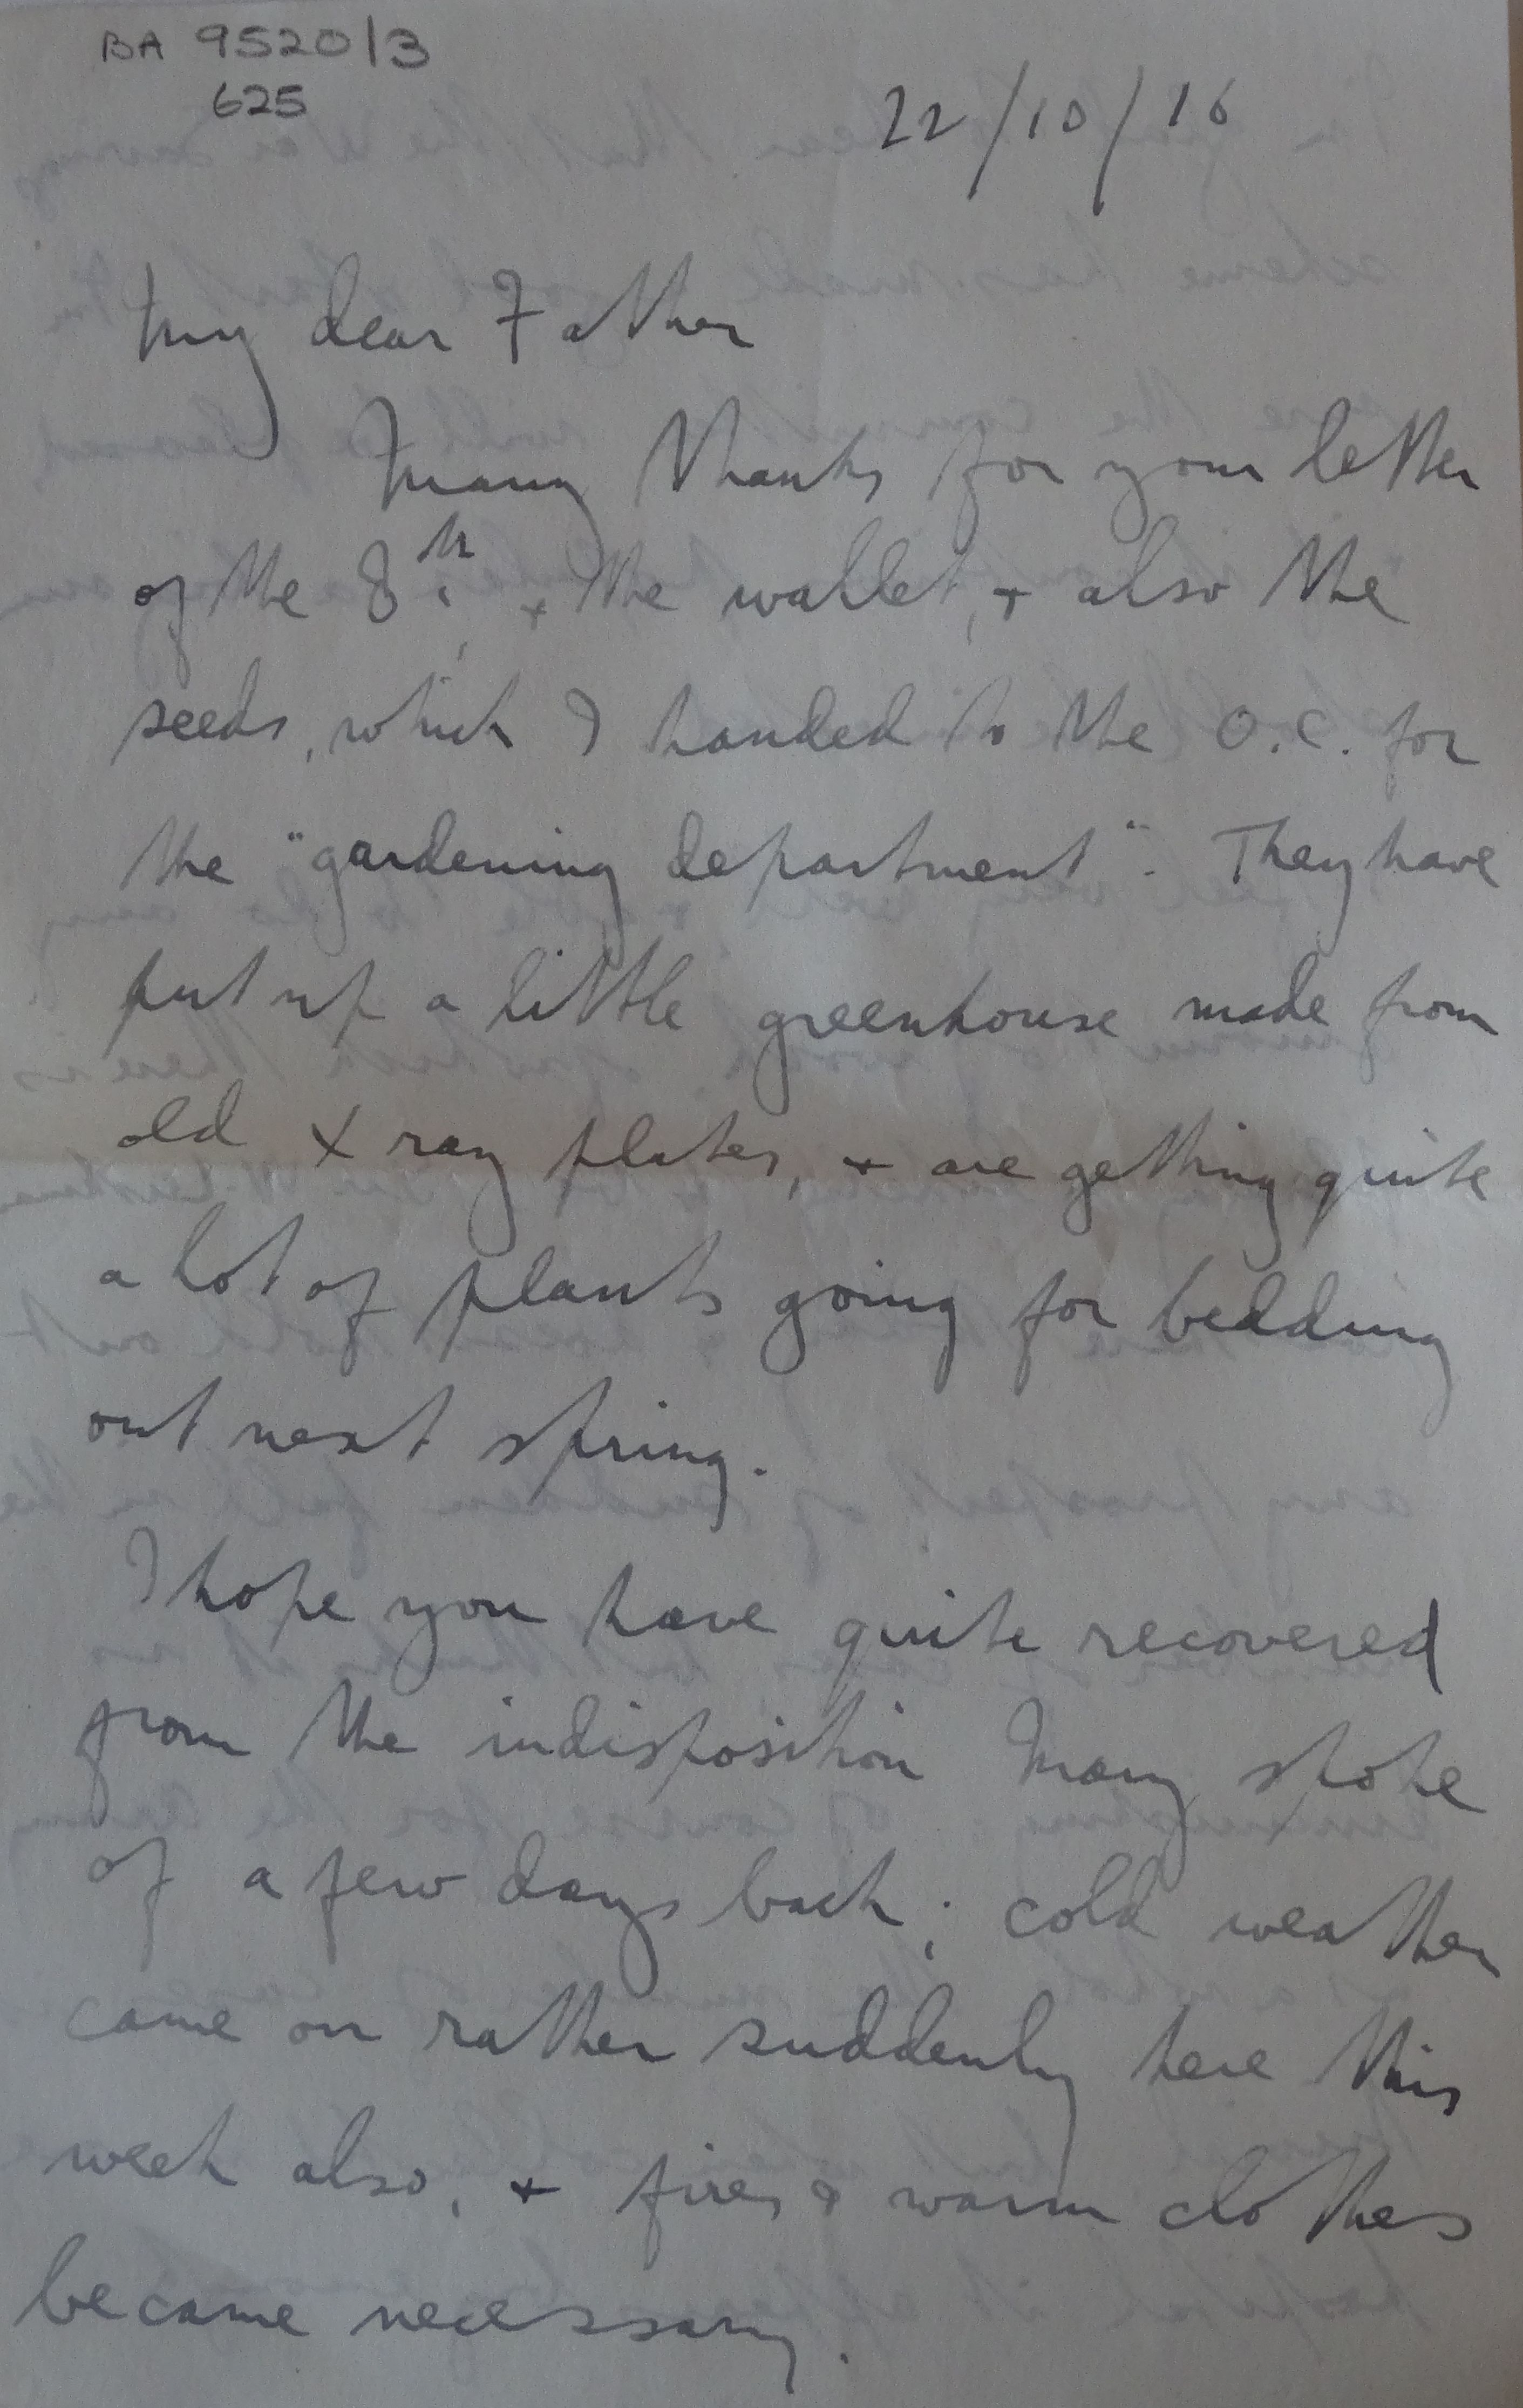 BA 9520/3
625
22/10/16
My dear Father
Many thanks for your letter
of the 8th, + the wallet, + also the
seeds, which I handed to the O.C. for
the "gardening department". They have
put up a little greenhouse made from
old X ray plates, + are getting quite
a lot of plants going for bedding
out next spring.
I hope you have quite recovered
from the indisposition Mary spoke
of a few days back; cold weather
came on rather suddenly here this
week also, + fires & warm clothes
became necessary.